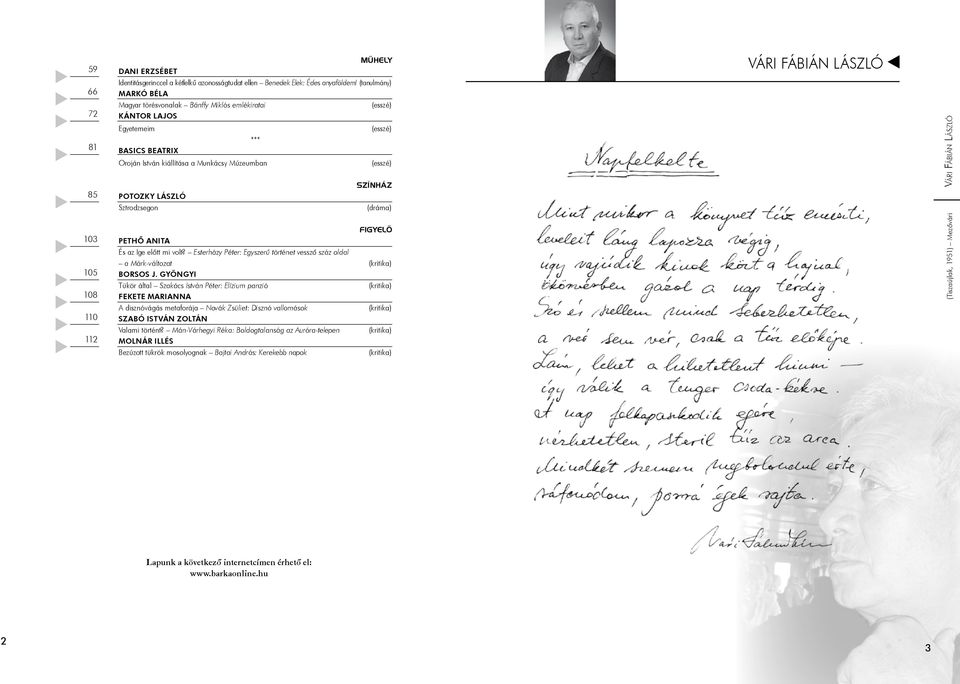 MŰHELY
59 DANI ERZSÉBET
Identitásgerinccel a kétlelkű azonosságtudat ellen – Benedek Elek: Édes anyaföldem! (tanulmány)
66 MARKÓ BÉLA
Magyar törésvonalak – Bánffy Miklós emlékiratai (esszé)
72 KÁNTOR LAJOS
Egyetemeim (esszé)
***
81 BASICS BEATRIX
Oroján István kiállítása a Munkácsy Múzeumban (esszé)
SZÍNHÁZ
85 POTOZKY LÁSZLÓ
Sztrodzsegon (dráma)
FIGYELŐ
103 PETHŐ ANITA
És az Ige előtt mi volt? – Esterházy Péter: Egyszerű történet vessző száz oldal
– a Márk-változat (kritika)
105 BORSOS J. GYÖNGYI
Tükör által – Szakács István Péter: Elízium panzió (kritika)
108 FEKETE MARIANNA
A disznóvágás metaforája – Novák Zsüliet: Disznó vallomások (kritika)
110 SZABÓ ISTVÁN ZOLTÁN
Valami történt? – Mán-Várhegyi Réka: Boldogtalanság az Auróra-telepen (kritika)
112 MOLNÁR ILLÉS
Bezúzott tükrök mosolyognak – Bajtai András: Kerekebb napok (kritika)
Lapunk a következő internetcímen érhető el:
www.barkaonline.hu
2
VÁRI FÁBIÁN LÁSZLÓ
Napfelkelte
Mint mikor a könyvet tűz emészti,
leveleit láng lapozza végig,
úgy vajúdik kínok közt a hajnal,
ökörvérben gázol a nap térdig.
Szó és szellem mind sebezhetetlen,
a vér sem vér, csak a tűz előképe.
Lám, lehet a hihetetlent hinni —
így válik a tenger csoda-kékre.
A nap felkapaszkodik egére,
nézhetetlen, steril tűz az arca.
Mindkét szemem megbolondul érte,
ráfonódom, porrá égek rajta.
Vári Fábián László
VÁRI FÁBIÁN LÁSZLÓ
(Tiszaújlak, 1951) – Mezővári
3